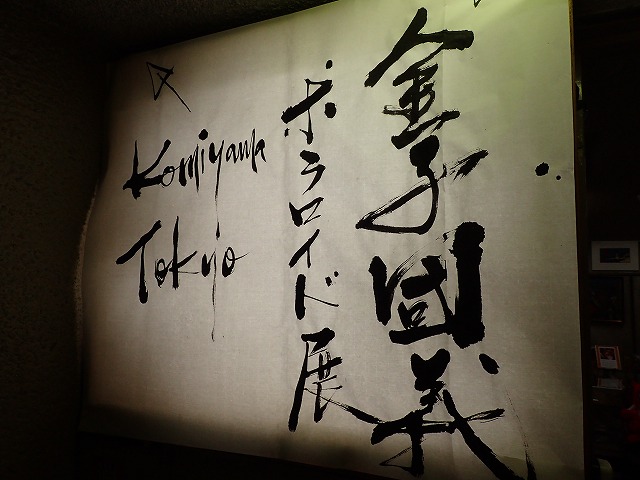 金子國義
ポラロイド展
Komiyama
Tokyo